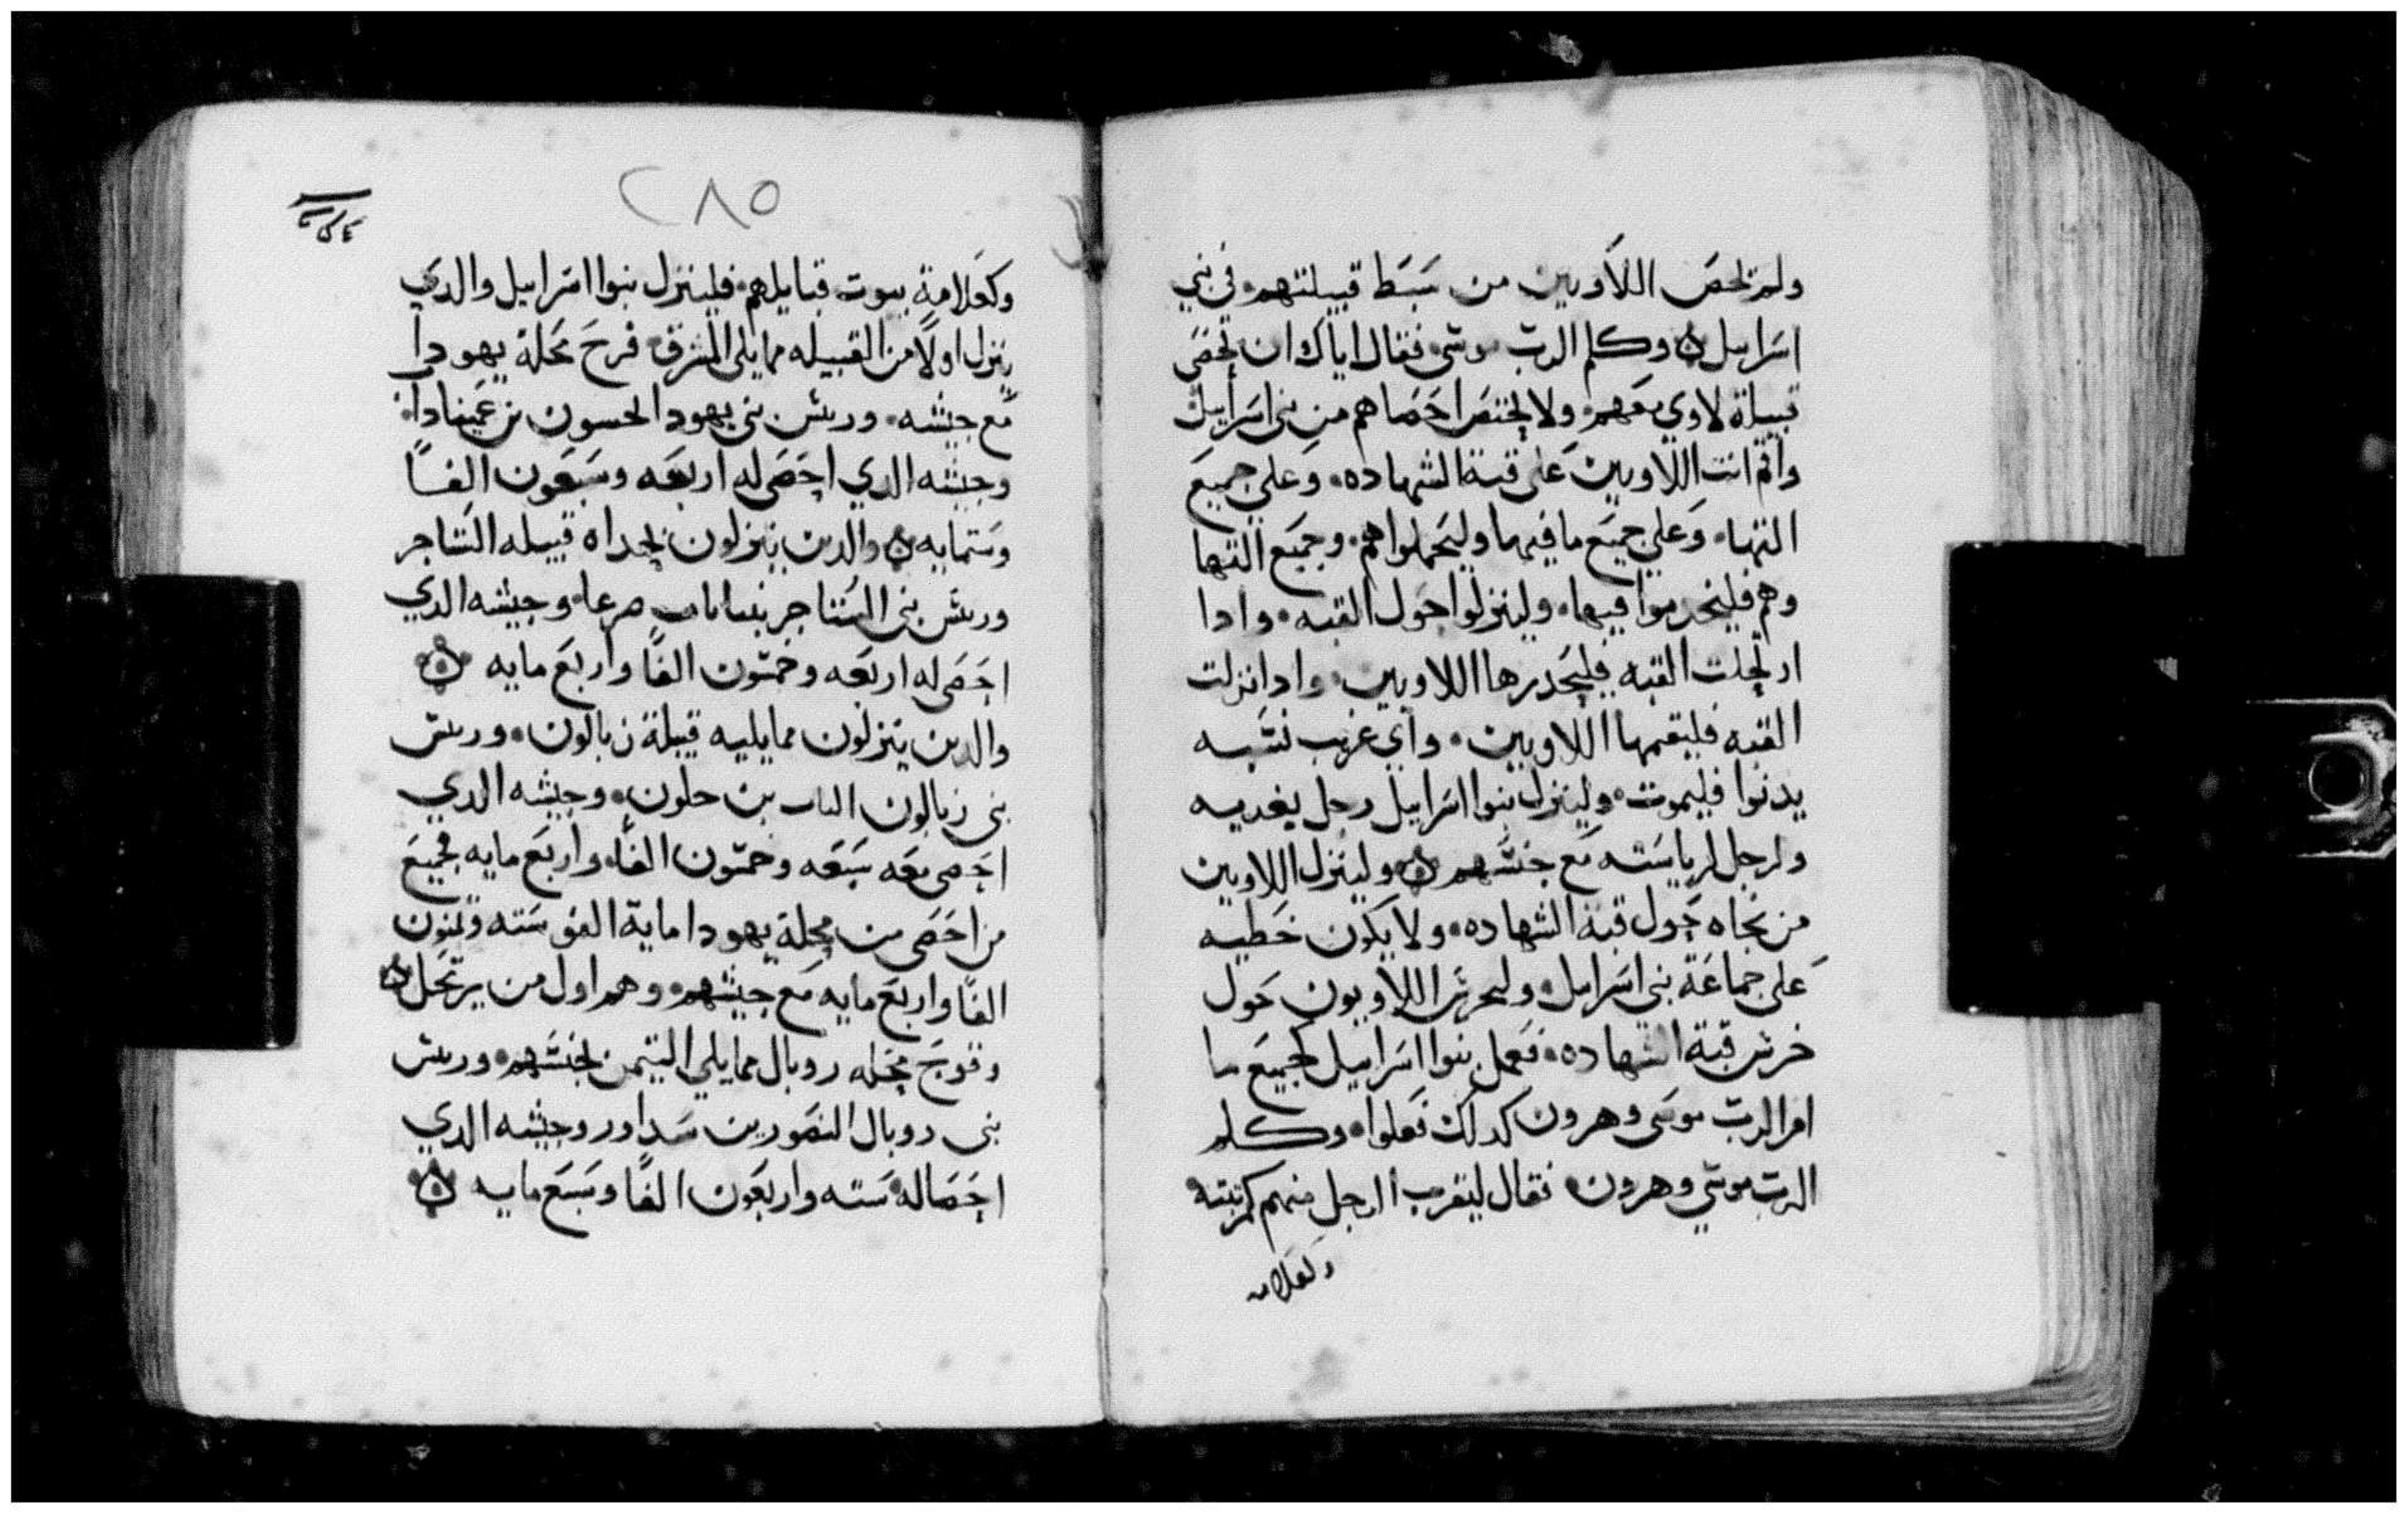 ولم تحص اللاويين من سبط قبيلتهم في بني
اسراييل ۞ وكلم الرب موسى فقال اياك ان تحصى
قبيلة لاوي معهم ولا تحتص احصاهم من بني اسراييل
واقم انت اللاويين على قبة الشهاده وعلي جميع
التها وعلي جميع ما فيها وليحملوا هم وجميع التها
وهم فليخدموا فيها ولينزلوا حول القبه وادا
ارتحلت القبه فليحدرها اللاويين وادا نزلت
القبه فليقمها اللاويين واي غريب نسبه
يدنوا فليموت ولينزل بنوا اسراييل رجل يغديه
ولرجل لرياسته مع جنسهم ۞ ولينزل اللاويين
من تجاه حول قبة الشهاده ولا يكون خطيه
على جماعة بني اسراييل وليحرس اللاويون حول
خرس قبة الشهاده ففعل بنوا اسراييل لجميع ما
امر الرب موسى وهرون كدلك فعلوا وكلم
الرب موسي وهرون فقال ليقرب الرجل منهم كمرتبته
وكعلامه
٢٨٥
وكعلامة بيوت قبايلهم فلينزل بنوا اسراييل والدي
ينزل اولًا من القبيله مما يلي المشرق فرح محلة يهودا
مع جيشه وريس بني يهودا لحسون بن عميناداب
وجيشه الدي احصى له اربعه وسبعون الفًا
وستمايه ۞ والدين ينزلون بحداه قبيله الساجر
وريس بني الساجر بنيايل بن صرعا وجيشه الدي
احصى له اربعه وخمسون الفًا واربع مايه ۞
والدين ينزلون مما يليه قبيلة زبالون وريس
بني زبالون الياب بن حلون وجيشه الدي
احصى معه سبعه وخمسون الفًا واربع مايه فجميع
من احصى من محلة يهودا ماية الف وسته وثمنون
الفًا واربع مايه مع جيشهم وهم اول من يرتحل ۞
وفوج محله روبال مما يلي التيمن بجنسهم وريس
بني روبال النصور بن سداور وجيشه الدي
احصا له سته واربعون الفًا وسبع مايه ۞